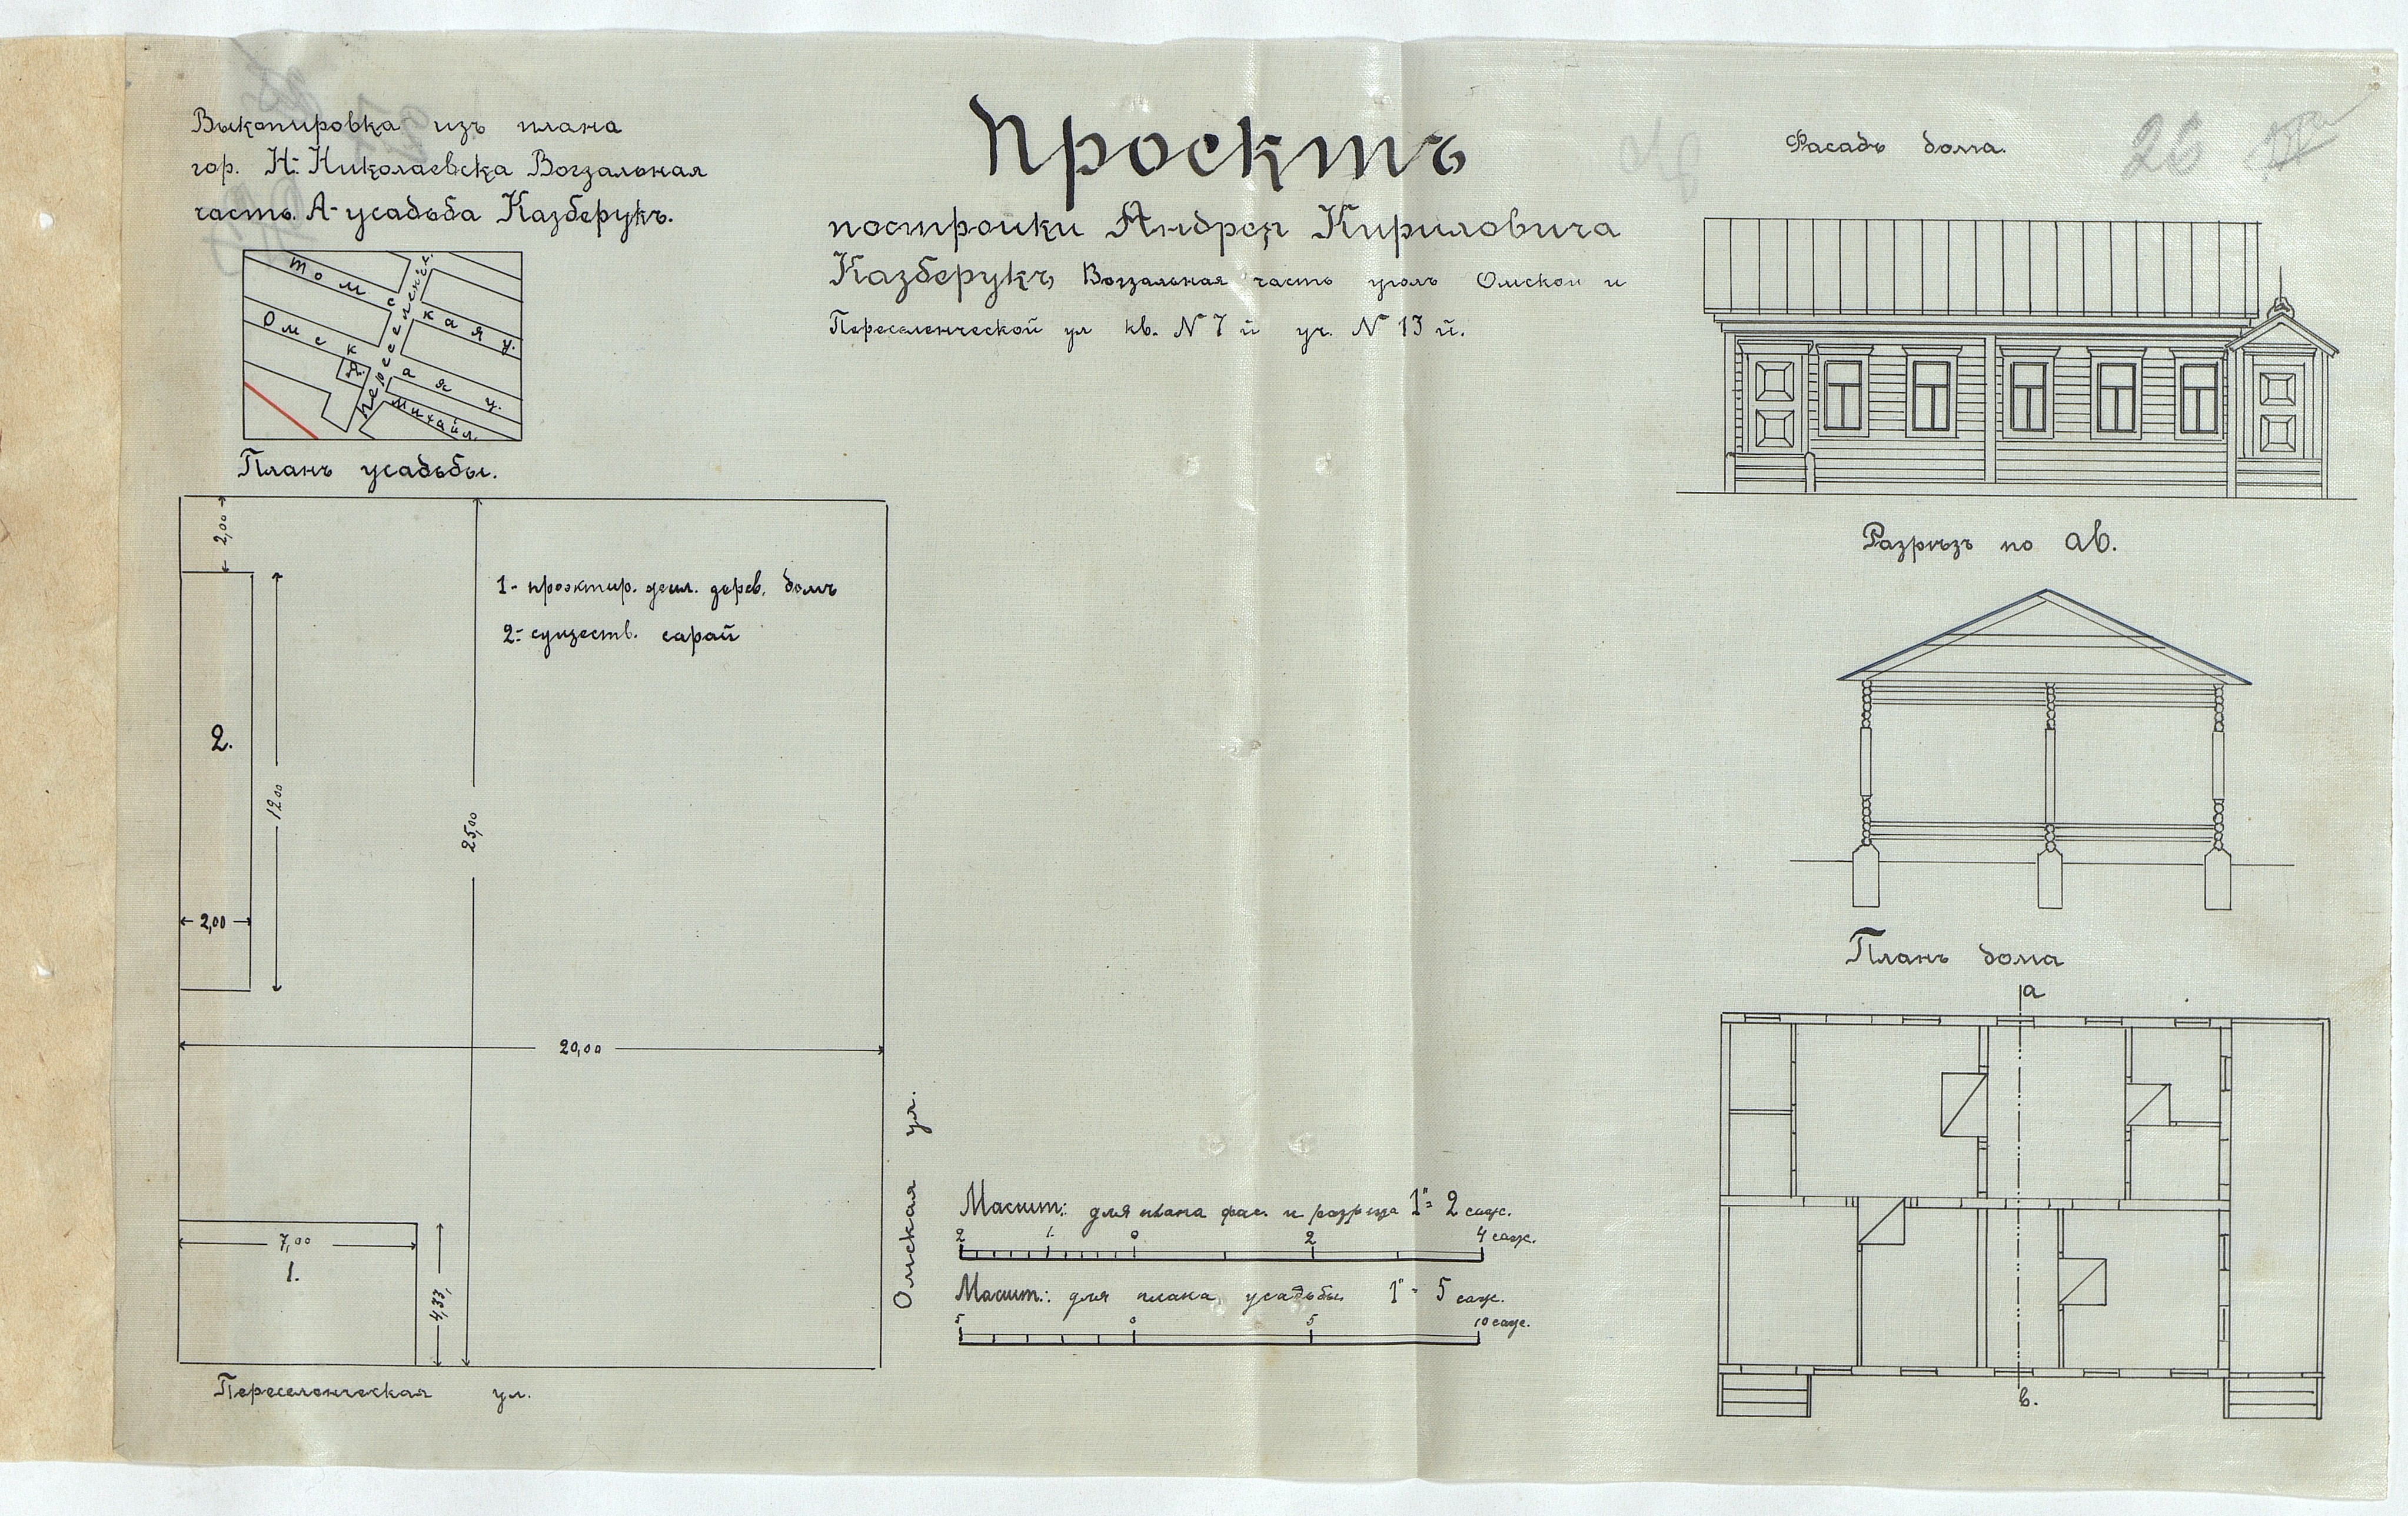 Выкопировка изъ плана
гор. Н-Николаевска Вокзальная
часть. А-усадьба Казберукъ.
Томская у.
Омская у.
Переселенч.
Михайл.
А.
Планъ усадьбы.
2,00
1- проэктир. жил. дерев. домъ
2- существ. сарай
2.
12.00
25,00
2,00
20,00
7,00
1.
4,33
Омская ул.
Переселенческая ул.
Проектъ
постройки Андрея Кириловича
Казберукъ Вокзальная часть уголъ Омской и
Переселенческой ул кв. N 7й уч. N 13й.
Масшт: для плана фас. и разреза 1"= 2 саж.
2 1 0 2 4 саж.
Масшт.: для плана усадьбы 1"= 5 саж.
5 0 5 10 саж.
Фасадъ дома.
26
Разрѣзъ по ав.
Планъ дома
а
в.